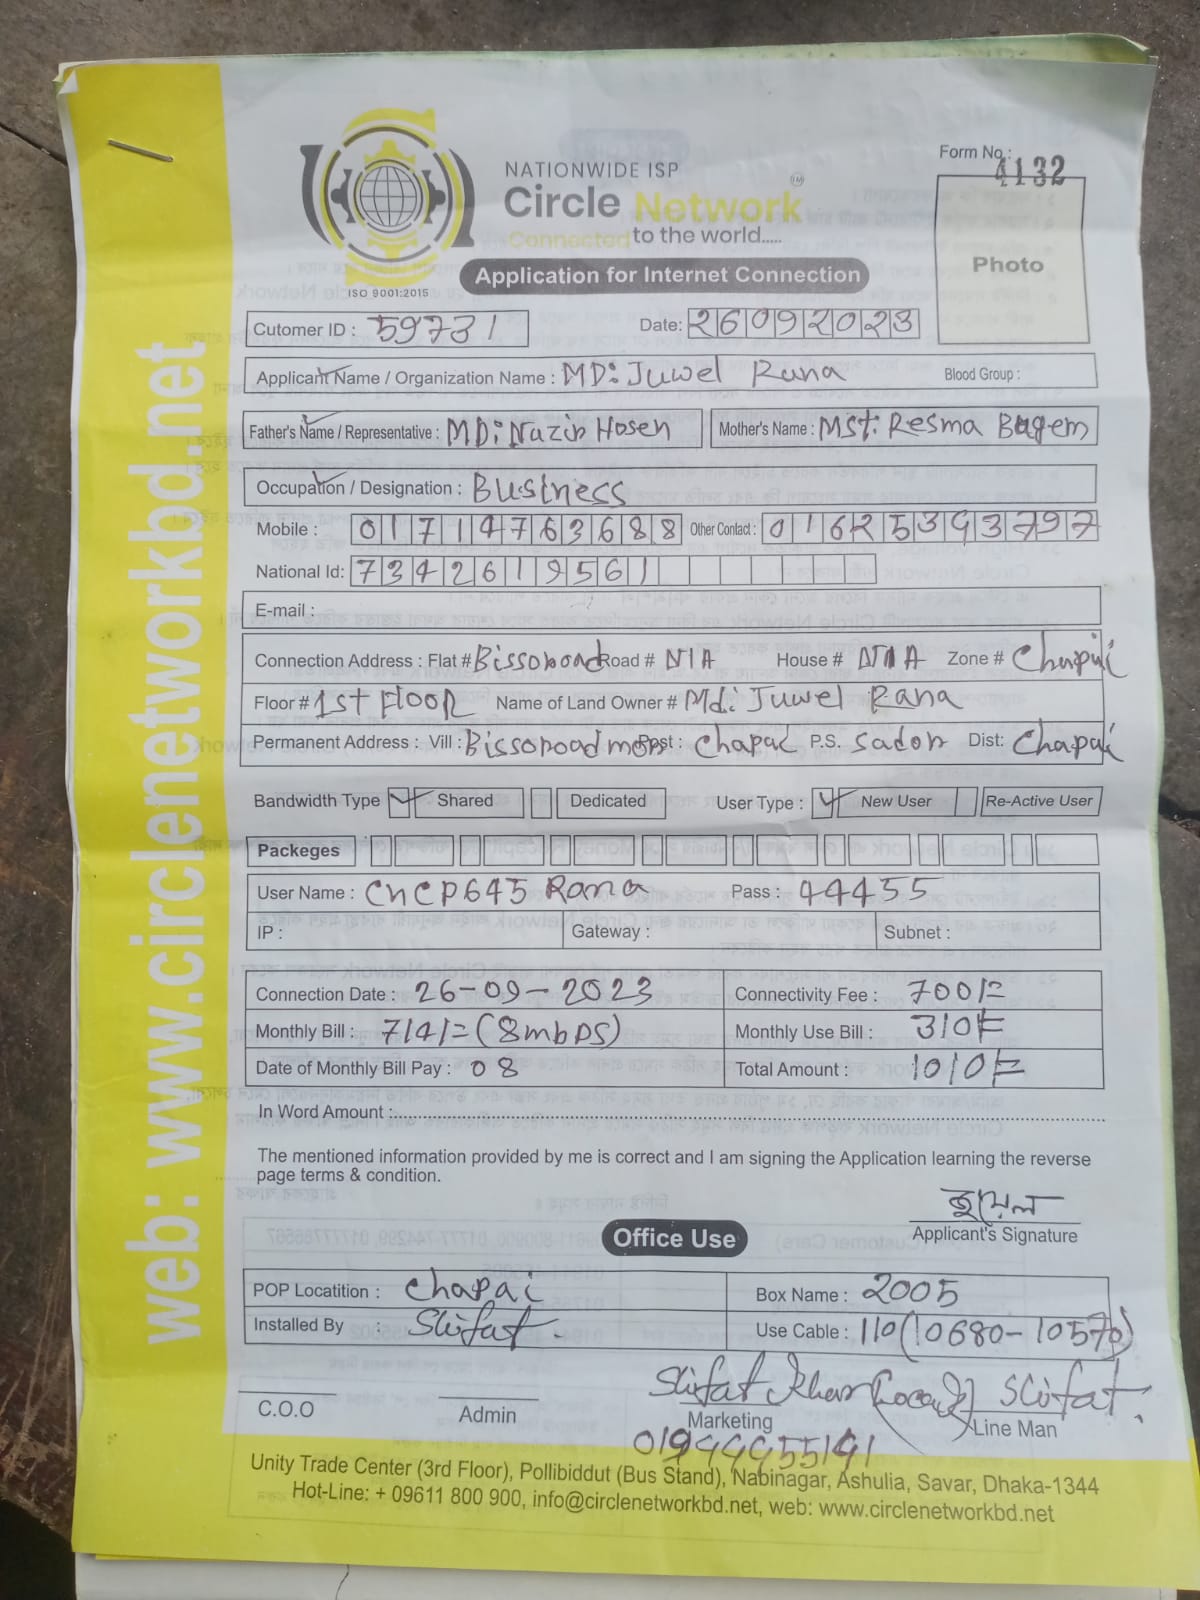 NATIONWIDE ISP
Circle Network TM
Connected to the world.....
ISO 9001:2015
Application for Internet Connection
Form No.: 4132
Photo
Cutomer ID : 59731 Date: 26092023
Applicant Name / Organization Name : MD: Juwel Rana Blood Group :
Father's Name / Representative : MD: Nazir Hosen Mother's Name : Mst: Resma Bagem
Occupation / Designation : Business
Mobile : 01714763688 Other Contact : 01625393797
National Id: 7342619561
E-mail :
Connection Address : Flat # Bissoroad Road # N/A House # N/A Zone # Chapai
Floor # 1st Floor Name of Land Owner # Md: Juwel Rana
Permanent Address : Vill : Bissoroad more Post : Chapai P.S. Sador Dist: Chapai
Bandwidth Type Shared Dedicated User Type : New User Re-Active User
Packeges
User Name : CNCP645 Rana Pass : 44455
IP : Gateway : Subnet :
Connection Date : 26-09-2023 Connectivity Fee : 700/=
Monthly Bill : 714/= (8mbps) Monthly Use Bill : 310/=
Date of Monthly Bill Pay : 08 Total Amount : 1010/=
In Word Amount :
The mentioned information provided by me is correct and I am signing the Application learning the reverse
page terms & condition.
জুয়েল
Applicant's Signature
Office Use
POP Locatition : Chapai Box Name : 2005
Installed By : Shifat. Use Cable : 110 (10680-10570)
Shifat Khan Shifat.
C.O.O Admin Marketing Line Man
01999955191
Unity Trade Center (3rd Floor), Pollibiddut (Bus Stand), Nabinagar, Ashulia, Savar, Dhaka-1344
Hot-Line: + 09611 800 900, info@circlenetworkbd.net, web: www.circlenetworkbd.net
web: www.circlenetworkbd.net